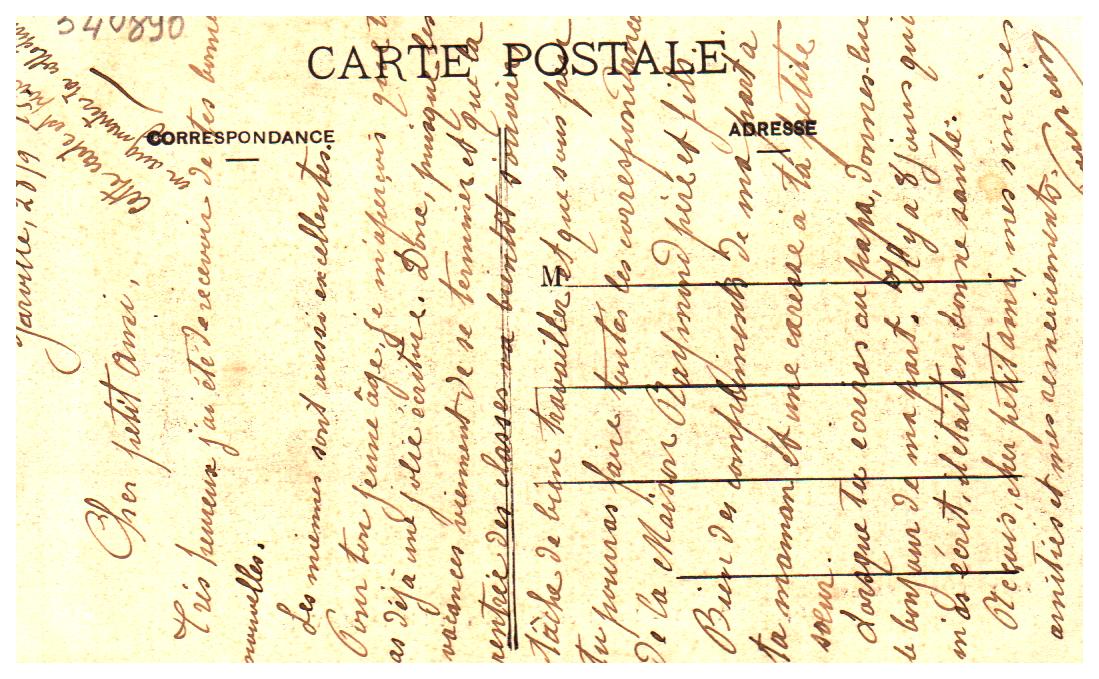 340890
CARTE POSTALE
CORRESPONDANCE
ADRESSE
M
Jarville, 28/9
cette carte est pour
augmenter ta collection
Cher petit Ami,
Très heureux j'ai été de recevoir de tes bonnes
nouvelles.
Les miennes sont aussi excellentes.
Pour ton jeune âge, je m'aperçois que tu
as déjà une jolie écriture. Donc, puisque les
vacances viennent de se terminer et que la
rentrée des classes va bientôt sonner
tâche de bien travailler et que sous peu
tu pourras faire toutes les correspondances
de la Maison Raymond père et fils.
Bien des compliments de ma part à
ta maman et une caresse à ta petite
sœur.
Lorsque tu écriras au papa, donnes-lui
le bonjour de ma part. Il y a 8 jours qu'il
m'a écrit, il était en bonne santé.
Reçois, cher petit ami, mes sincères
amitiés et mes remerciements.